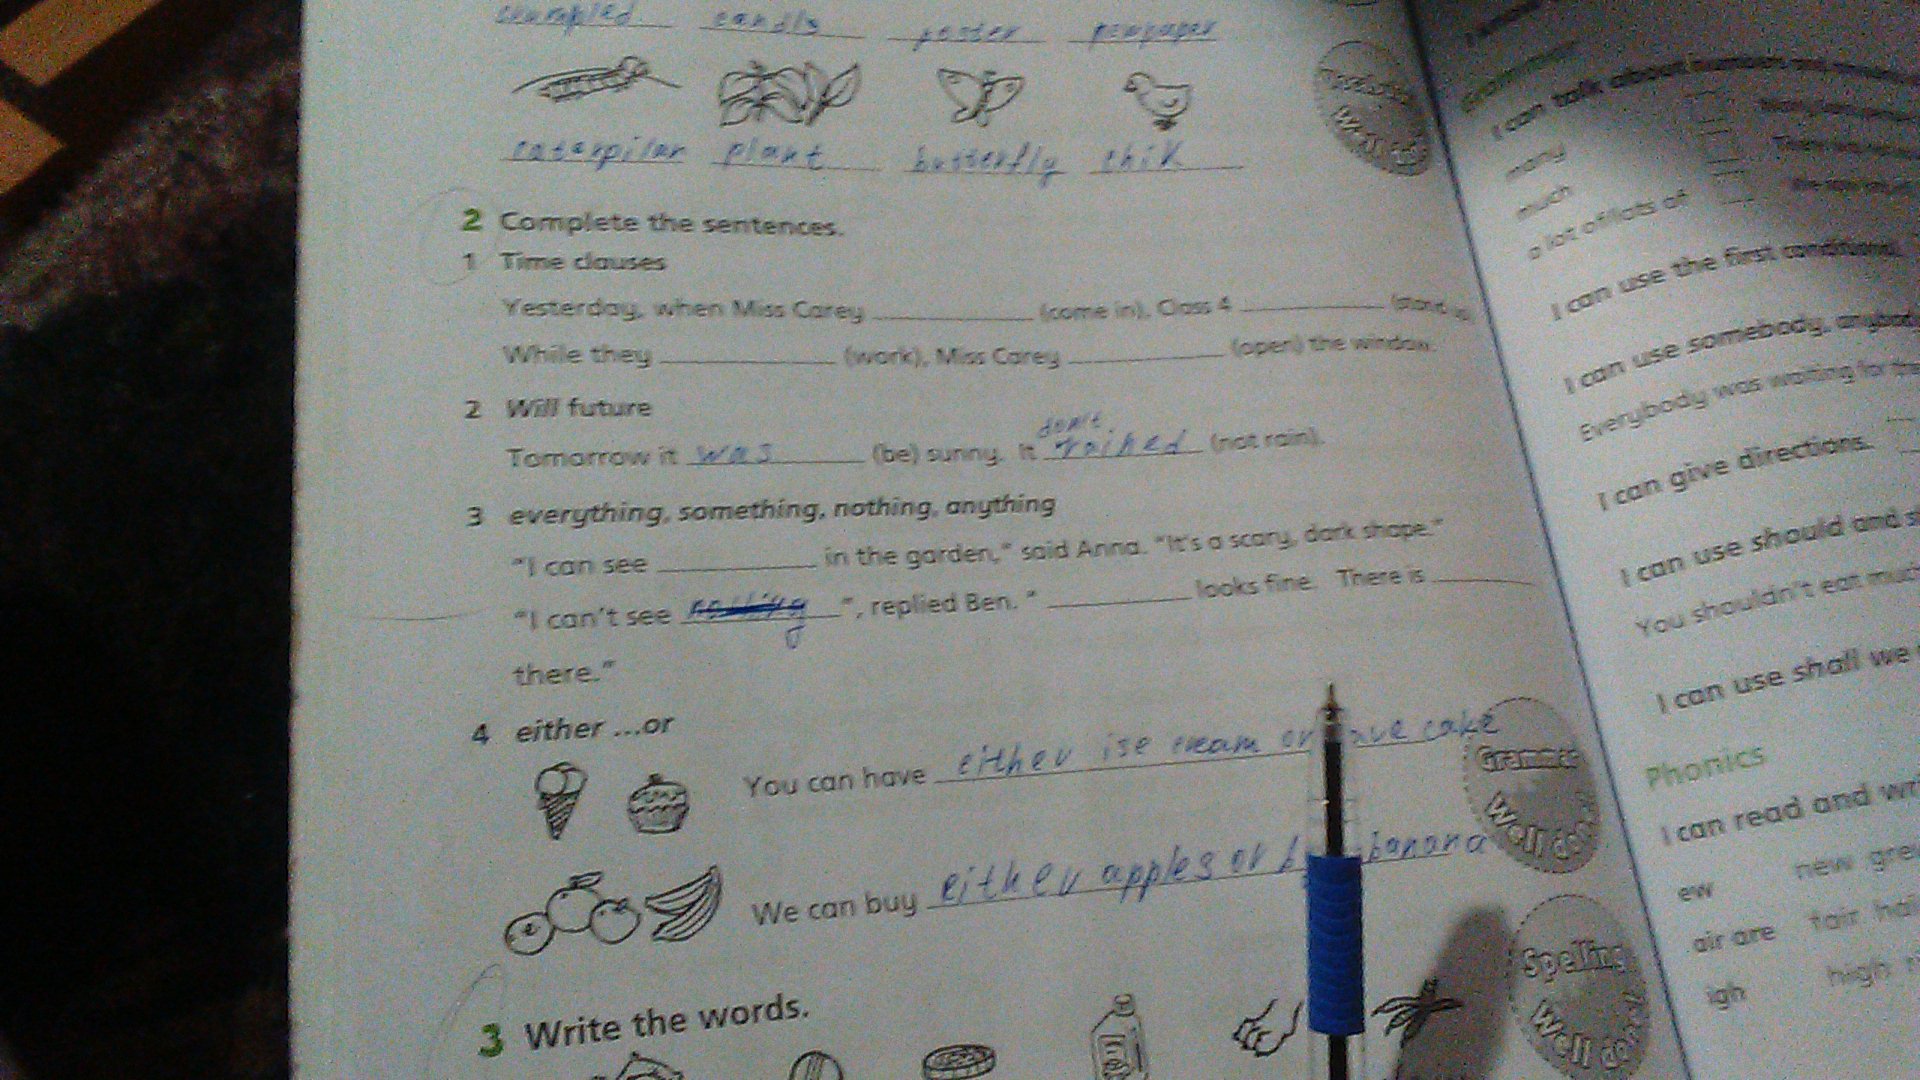 candls poster
caterpilar plant butterfly chik
2 Complete the sentences.
1 Time clauses
Yesterday, when Miss Carey ____ (come in), Class 4 ____ (stand
While they ____ (work), Miss Carey ____ (open) the window.
2 Will future
don't
Tomorrow it was (be) sunny. It rained (not rain).
3 everything, something, nothing, anything
"I can see ____ in the garden," said Anna. "It's a scary, dark shape."
"I can't see ____", replied Ben. " ____ looks fine. There is ____
there."
4 either ...or
You can have either ise cream or cake
We can buy either apples or banana
Grammar
Well done
3 Write the words.
Spelling
Well done
I can talk about
many
much
a lot of/lots of
I can use the first conditional.
I can use somebody,
Everybody was waiting for the
I can give directions.
I can use should and
You shouldn't eat much
I can use shall we
Phonics
I can read and
ew new
air are hair
igh high